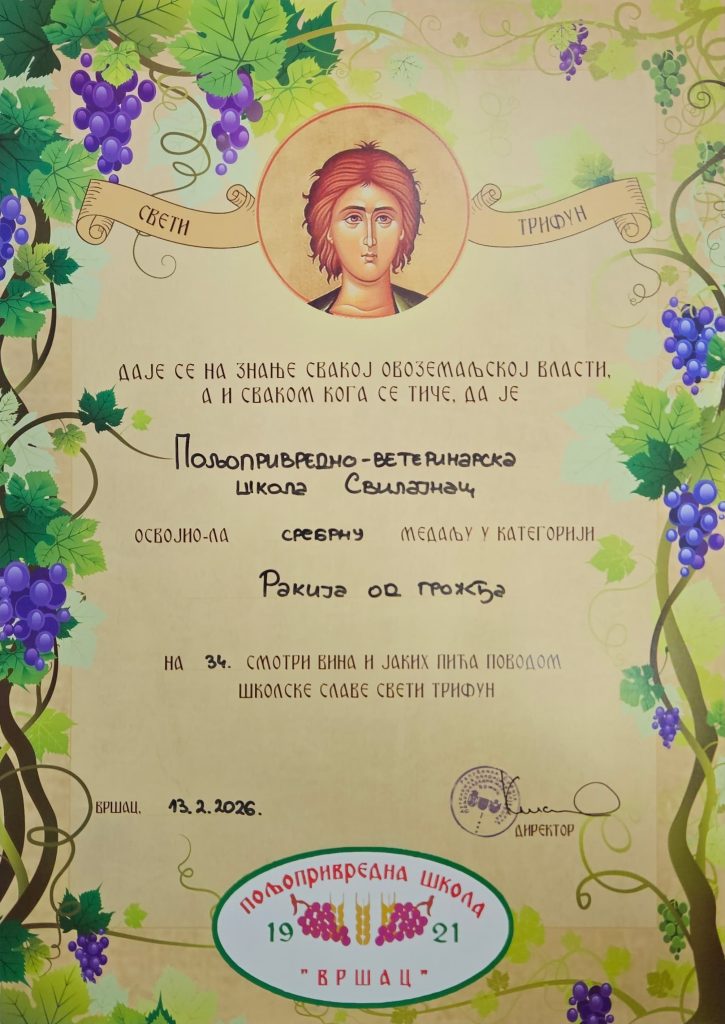 СВЕТИ ТРИФУН
ДАЈЕ СЕ НА ЗНАЊЕ СВАКОЈ ОВОЗЕМАЉСКОЈ ВЛАСТИ,
А И СВАКОМ КОГА СЕ ТИЧЕ, ДА ЈЕ
Пољопривредно-ветеринарска
школа Свилајнац
ОСВОЈИО-ЛА сребрну МЕДАЉУ У КАТЕГОРИЈИ
Ракија од грожђа
НА 34. СМОТРИ ВИНА И ЈАКИХ ПИЋА ПОВОДОМ
ШКОЛСКЕ СЛАВЕ СВЕТИ ТРИФУН
ВРШАЦ, 13.2.2026.
ДИРЕКТОР
ПОЉОПРИВРЕДНА ШКОЛА
19 21
"ВРШАЦ"